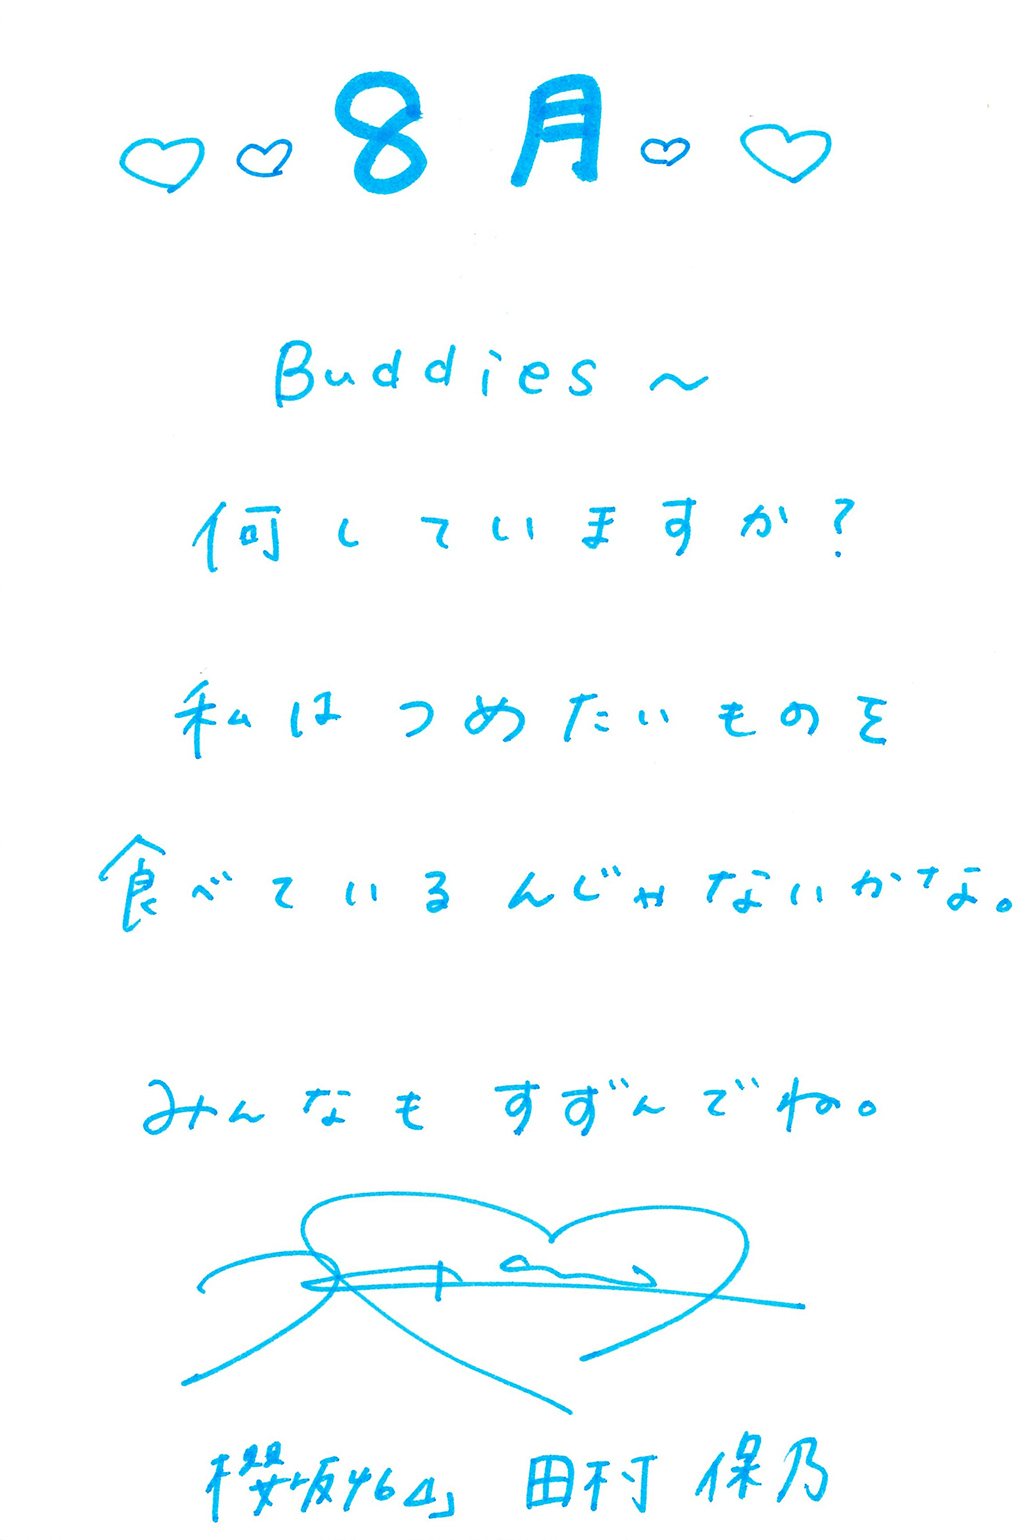 ♡♡8月♡♡
Buddies～
何していますか?
私はつめたいものを
食べているんじゃないかな。
みんなもすずんでね。
櫻坂46 田村 保乃